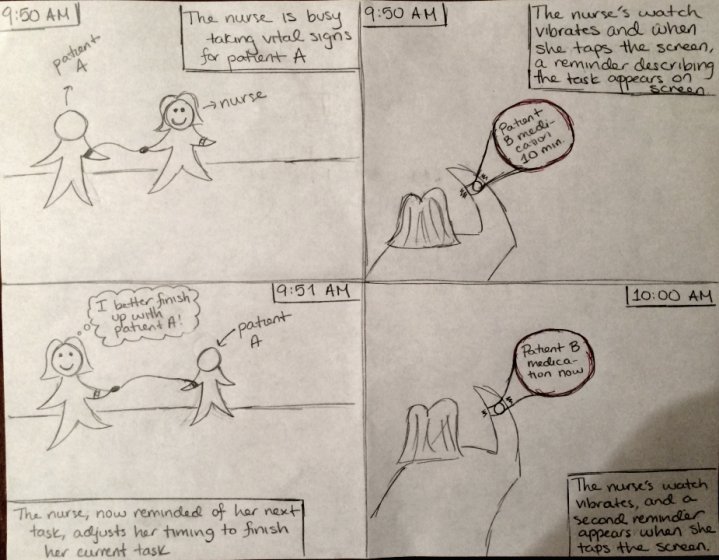 9:50 AM
The nurse is busy
taking vital signs
for patient A
patient
A
nurse
9:50 AM
The nurse's watch
vibrates and when
she taps the screen,
a reminder describing
the task appears on
screen.
Patient
B medi-
cation
10 min.
9:51 AM
I better finish
up with
patient A!
patient
A
The nurse, now reminded of her next
task, adjusts her timing to finish
her current task
10:00 AM
Patient B
medica-
tion now
The nurse's watch
vibrates, and a
second reminder
appears when she
taps the screen.